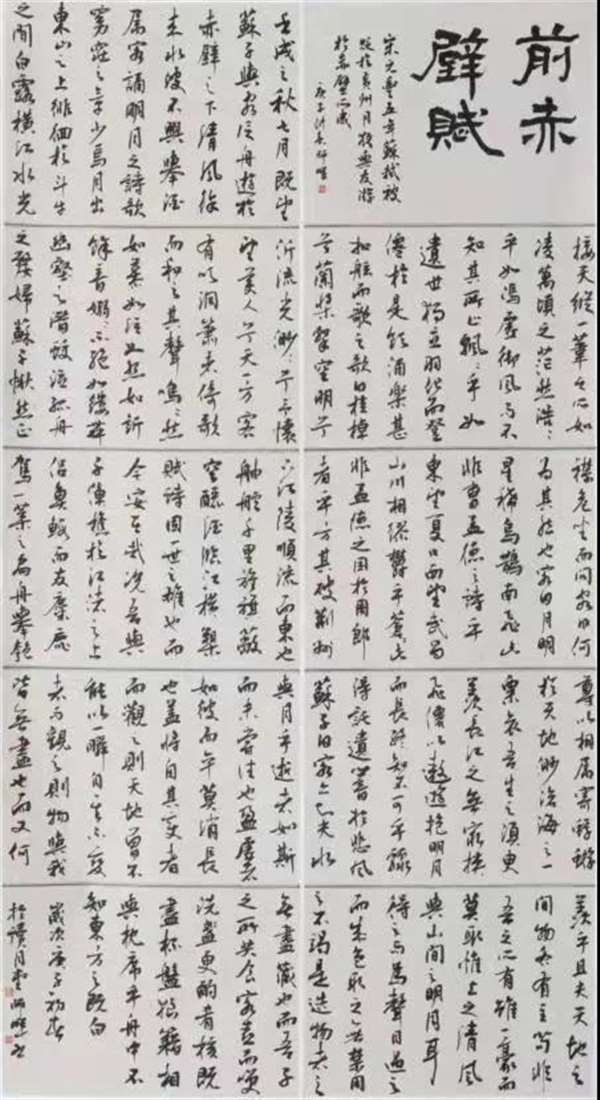 前赤
壁賦
宋元豐五年蘇軾被
貶於黃州月夜與友游
於赤壁而成
壬戌之秋七月既望
蘇子與客泛舟遊於
赤壁之下清風徐
來水波不興舉酒
属客誦明月之詩歌
窈窕之章少焉月出
東山之上徘徊於斗牛
之間白露橫江水光
接天縱一葦之所如
凌萬頃之茫然浩〻
乎如馮虛御風而不
知其所止飄〻乎如
遺世獨立羽化而登
僊於是飲酒樂甚
扣舷而歌之歌曰桂棹
兮蘭槳擊空明兮
泝流光渺〻兮予懷
望美人兮天一方客
有吹洞簫者倚歌
而和之其聲嗚〻然
如慕如泣如怨如訴
餘音嫋〻不絕如縷舞
幽壑之潛蛟泣孤舟
之嫠婦蘇子愀然正
襟危坐而問客曰何
為其然也客曰月明
星稀烏鵲南飛此
非曹孟德之詩乎
東望夏口西望武昌
山川相繆鬱乎蒼〻此
非孟德之困於周郎
者乎方其破荊州
下江陵順流而東也
舳艫千里旌旗蔽
空釃酒臨江橫槊
賦詩固一世之雄也而
今安在哉況吾與
子漁樵於江渚之上
侶魚鰕而友麋鹿
駕一葉之扁舟舉匏
尊以相属寄蜉蝣
於天地渺滄海之一
粟哀吾生之須臾
羨長江之無窮挾
飛僊以遨遊抱明月
而長終知不可乎驟
得託遺響於悲風
蘇子曰客亦知夫水
與月乎逝者如斯
而未嘗往也盈虛者
如彼而卒莫消長
也蓋將自其變者
而觀之則天地曾不
能以一瞬自其不變
者而觀之則物與我
皆無盡也而又何
羨乎且夫天地之
間物各有主苟非
吾之所有雖一毫而
莫取惟上之清風
與山間之明月耳
得之而為聲目遇之
而成色取之無禁用
之不竭是造物者之
無盡藏也而吾子
之所共食客喜而笑
洗盞更酌肴核既
盡杯盤狼籍相
與枕席乎舟中不
知東方之既白
歲次庚子初春
於讀月堂